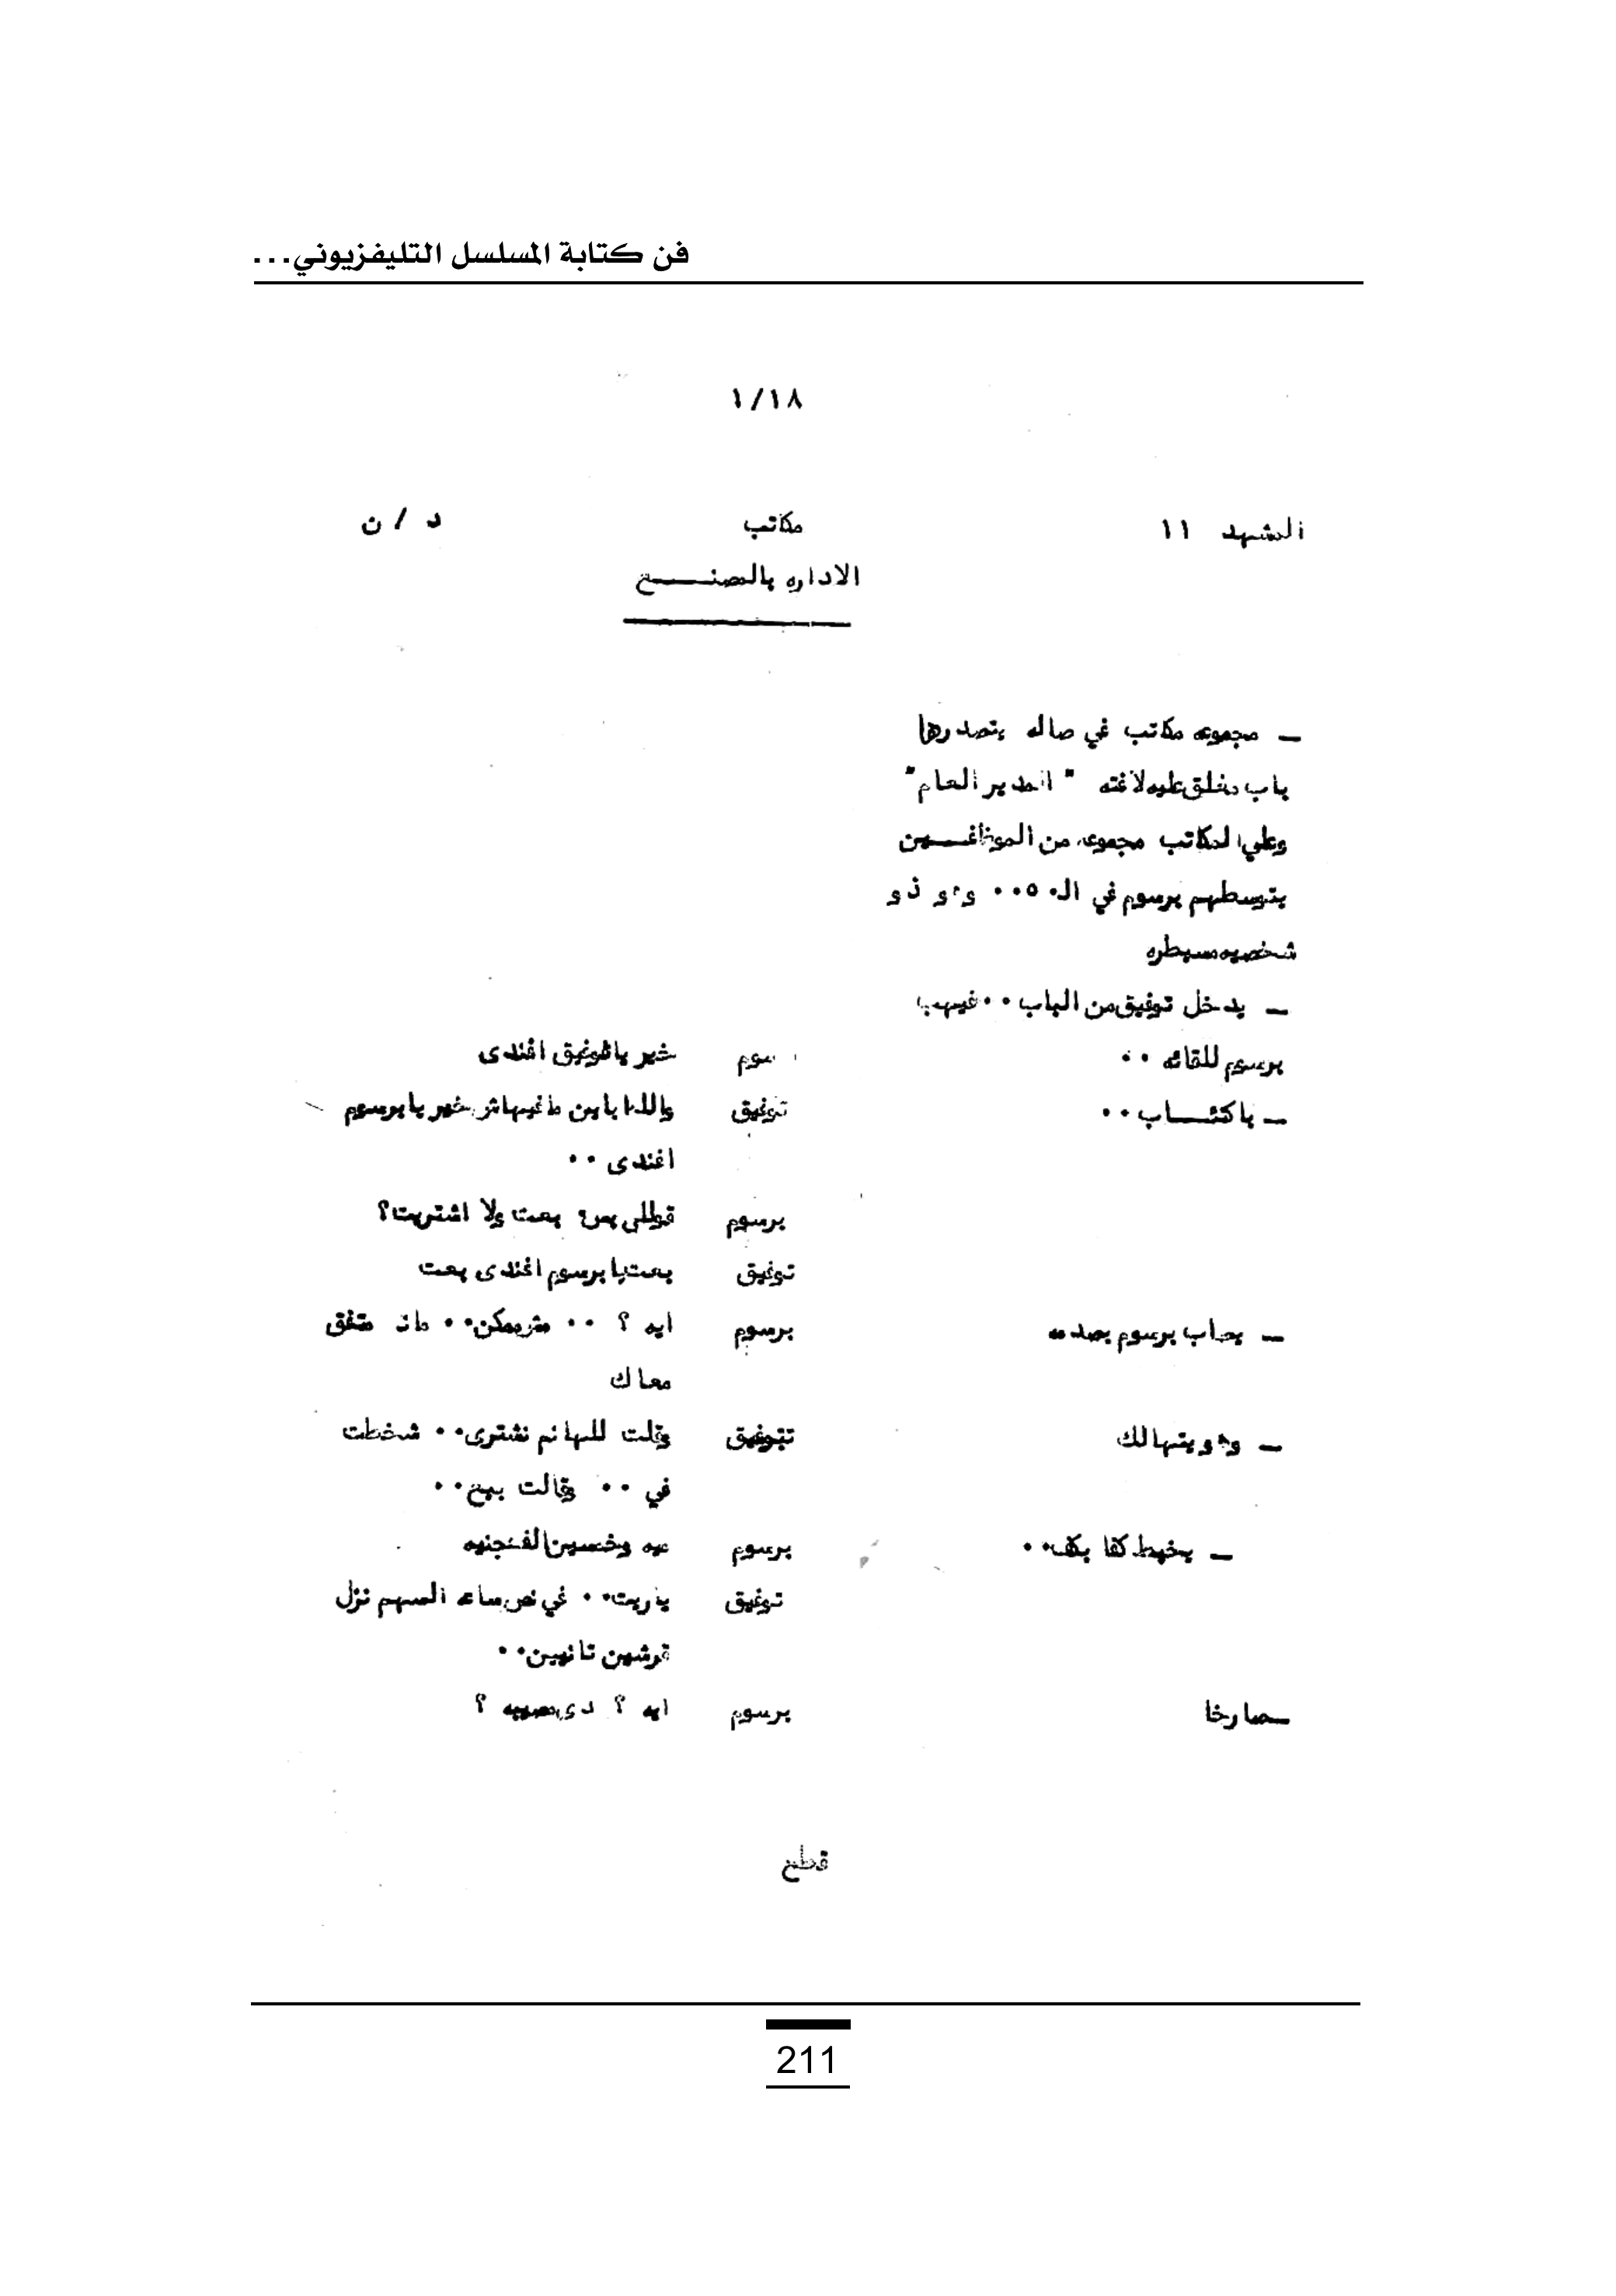 فن كتابة المسلسل التليفزيوني...
١/١٨
المشهد ١١ مكاتب د / ن
الاداره بالمصنـــع
ــ مجموعه مكاتب في صاله يتصدرها
باب مغلق عليه لافته " المدير العام "
وعلي المكاتب مجموعه من الموظفـــين
يتوسطهم برسوم في الـ ٥٠ ٠٠ وهو ذو
شخصيه مسيطره
ــ يدخل توفيق من الباب ٠٠ فيهب
برسوم للقائه ٠٠ برسوم خير ياتوفيق افندى
ــ باكتئـــاب ٠٠ توفيق والله باين مافيهاش خير يابرسوم
افندى ٠٠
برسوم قوللي بس بعت ولا اشتريت؟
توفيق بعت يابرسوم افندى بعت
ــ يصاب برسوم بصدمه برسوم ايه ؟ ٠٠ مش ممكن ٠٠ مانا متفق
معاك
ــ وهو يتهالك توفيق وقلت للهانم نشترى ٠٠ شخطت
في ٠٠ وقالت بيع ٠٠
ــ يخبط كفا بكف ٠٠ برسوم ميه وخمسين الف جنيه
توفيق ياريت ٠٠ في نص ساعه السهم نزل
قرشين تانيين ٠٠
ــ صارخا برسوم ايه ؟ دى مصيبه ؟
قطع
211